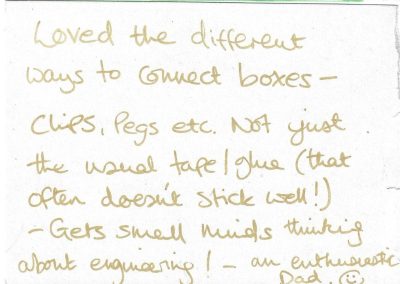 Loved the different
ways to connect boxes –
Clips, Pegs etc. Not just
the usual tape/glue (that
often doesn't stick well!)
– Gets small minds thinking
about engineering! – an enthusiastic
Dad. ☺